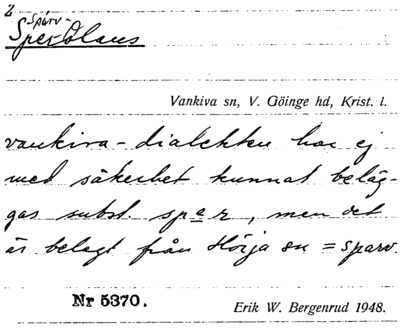 2
Sparv-
Sper-Olaus
Vankiva sn, V. Göinge hd, Krist. l.
vankiva-dialekten har ej
med säkerhet kunnat beläg-
gas subst. sper, men det
är belagt från Hörja sn = sparv.
Nr 5370.
Erik W. Bergenrud 1948.